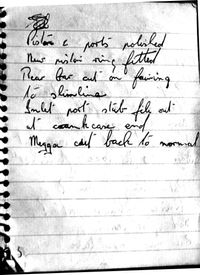 Piston & ports polished
New piston ring fitted
Rear bar cut on fairing
to streamline
Inlet port stub fly out
at crankcase end
Megga cut back to normal
5